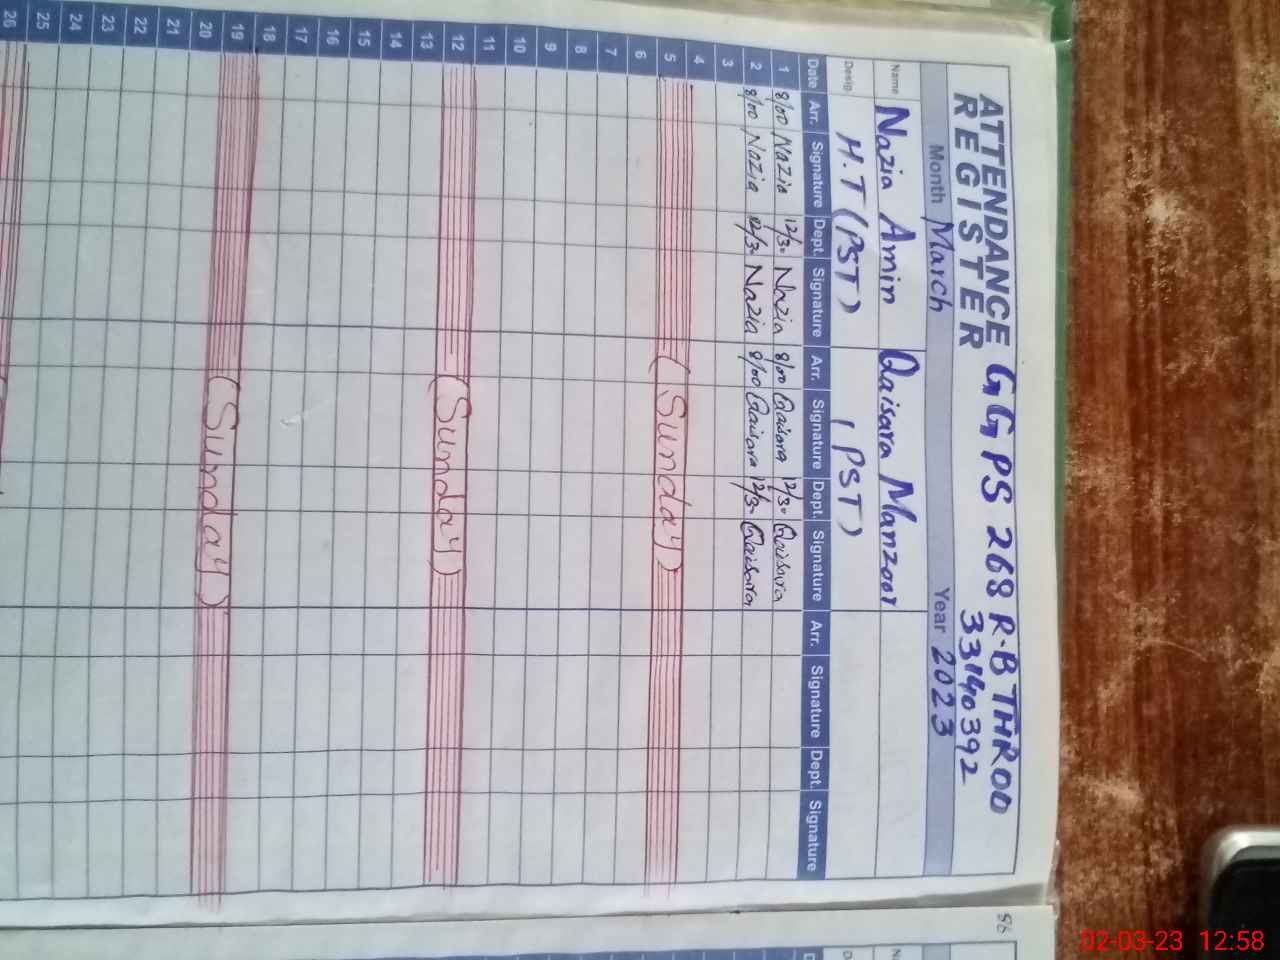 ATTENDANCE REGISTER GGPS 268 R.B THROO
33140392
Month March Year 2023
Name Nazia Amin Qaisara Manzoor
Desig. H.T (PST) (PST)
Date Arr. Signature Dept. Signature Arr. Signature Dept. Signature Arr. Signature Dept. Signature
1 8/00 Nazia 12/30 Nazia 8/00 Qaisara 12/30 Qaisara
2 8/00 Nazia 12/30 Nazia 8/00 Qaisara 12/30 Qaisara
3
4
5 (Sunday)
6
7
8
9
10
11
12 (Sunday)
13
14
15
16
17
18
19 (Sunday)
20
21
22
23
24
25
26
86
02-03-23 12:58